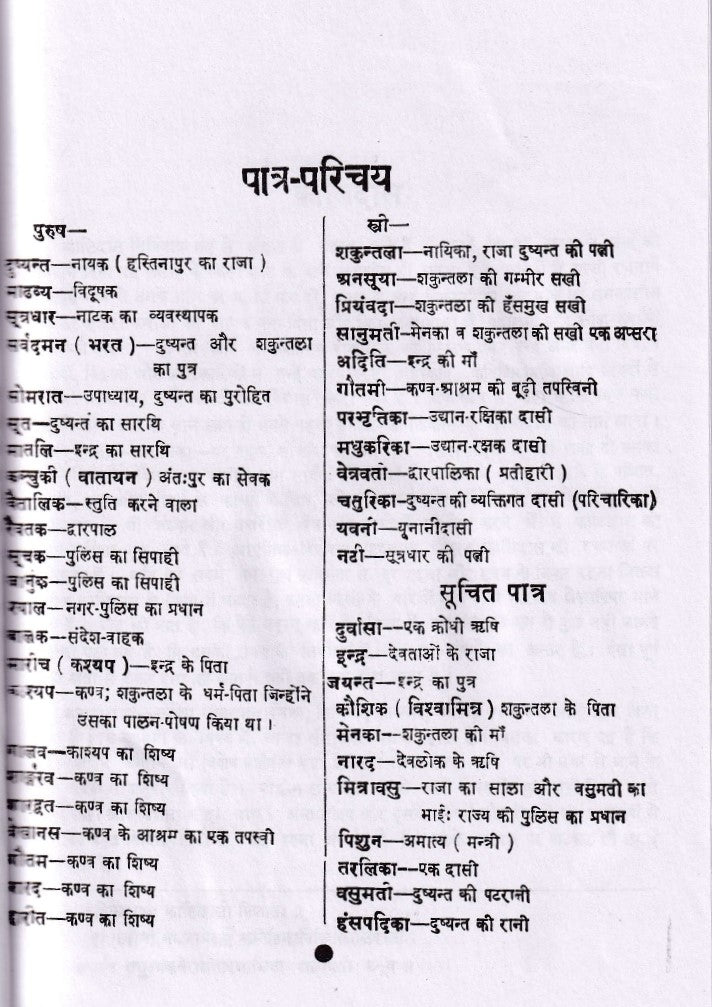 पात्र-परिचय
पुरुष—
दुष्यन्त—नायक ( हस्तिनापुर का राजा )
माढव्य—विदूषक
सूत्रधार—नाटक का व्यवस्थापक
सर्वदमन ( भरत )—दुष्यन्त और शकुन्तला
का पुत्र
सोमरात—उपाध्याय, दुष्यन्त का पुरोहित
सूत—दुष्यन्त का सारथि
मातलि—इन्द्र का सारथि
कञ्चुकी ( वातायन ) अंतःपुर का सेवक
वैतालिक—स्तुति करने वाला
रैवतक—द्वारपाल
सूचक—पुलिस का सिपाही
जानुक—पुलिस का सिपाही
श्याल—नगर-पुलिस का प्रधान
बालक—संदेश-वाहक
मारीच ( कश्यप )—इन्द्र के पिता
काश्यप—कण्व; शकुन्तला के धर्म-पिता जिन्होंने
उसका पालन-पोषण किया था ।
गालव—काश्यप का शिष्य
शार्ङ्गरव—कण्व का शिष्य
शारद्वत—कण्व का शिष्य
वैखानस—कण्व के आश्रम का एक तपस्वी
गौतम—कण्व का शिष्य
नारद—कण्व का शिष्य
हारीत—कण्व का शिष्य
स्त्री—
शकुन्तला—नायिका, राजा दुष्यन्त की पत्नी
अनसूया—शकुन्तला की गम्भीर सखी
प्रियंवदा—शकुन्तला की हँसमुख सखी
सानुमती—मेनका व शकुन्तला की सखी एक अप्सरा
अदिति—इन्द्र की माँ
गौतमी—कण्व-आश्रम की बूढ़ी तपस्विनी
परभृतिका—उद्यान-रक्षिका दासी
मधुकरिका—उद्यान-रक्षक दासी
वेत्रवती—द्वारपालिका ( प्रतीहारी )
चतुरिका-दुष्यन्त की व्यक्तिगत दासी (परिचारिका)
यवनी—यूनानीदासी
नटी—सूत्रधार की पत्नी
सूचित पात्र
दुर्वासा—एक क्रोधी ऋषि
इन्द्र—देवताओं के राजा
जयन्त—इन्द्र का पुत्र
कौशिक ( विश्वामित्र ) शकुन्तला के पिता
मेनका—शकुन्तला की माँ
नारद—देवलोक के ऋषि
मित्रावसु—राजा का साला और वसुमती का
भाई: राज्य की पुलिस का प्रधान
पिशुन—अमात्य ( मन्त्री )
तरलिका—एक दासी
वसुमती—दुष्यन्त की पटरानी
हंसपदिका—दुष्यन्त की रानी